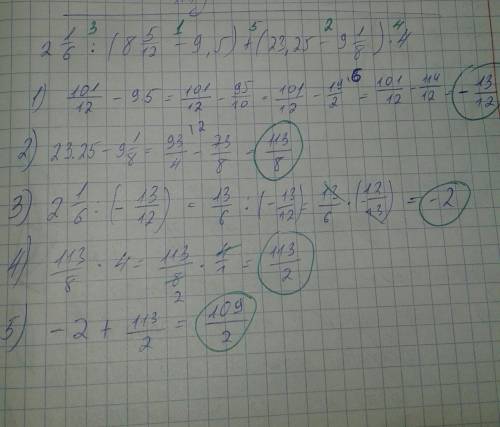 2 1/6 : (8 5/12 - 9,5) + (23,25 - 9 1/8) · 4
1) 101/12 - 9.5 = 101/12 - 95/10 = 101/12 - 19/2 = 101/12 - 114/12 = - 13/12
2) 23.25 - 9 1/8 = 93/4 - 73/8 = 113/8
3) 2 1/6 · (- 13/12) = 13/6 : (- 13/12) = 13/6 · (12/13) = -2
4) 113/8 · 4 = 113/8 · 4/1 = 113/2
5) -2 + 113/2 = 109/2